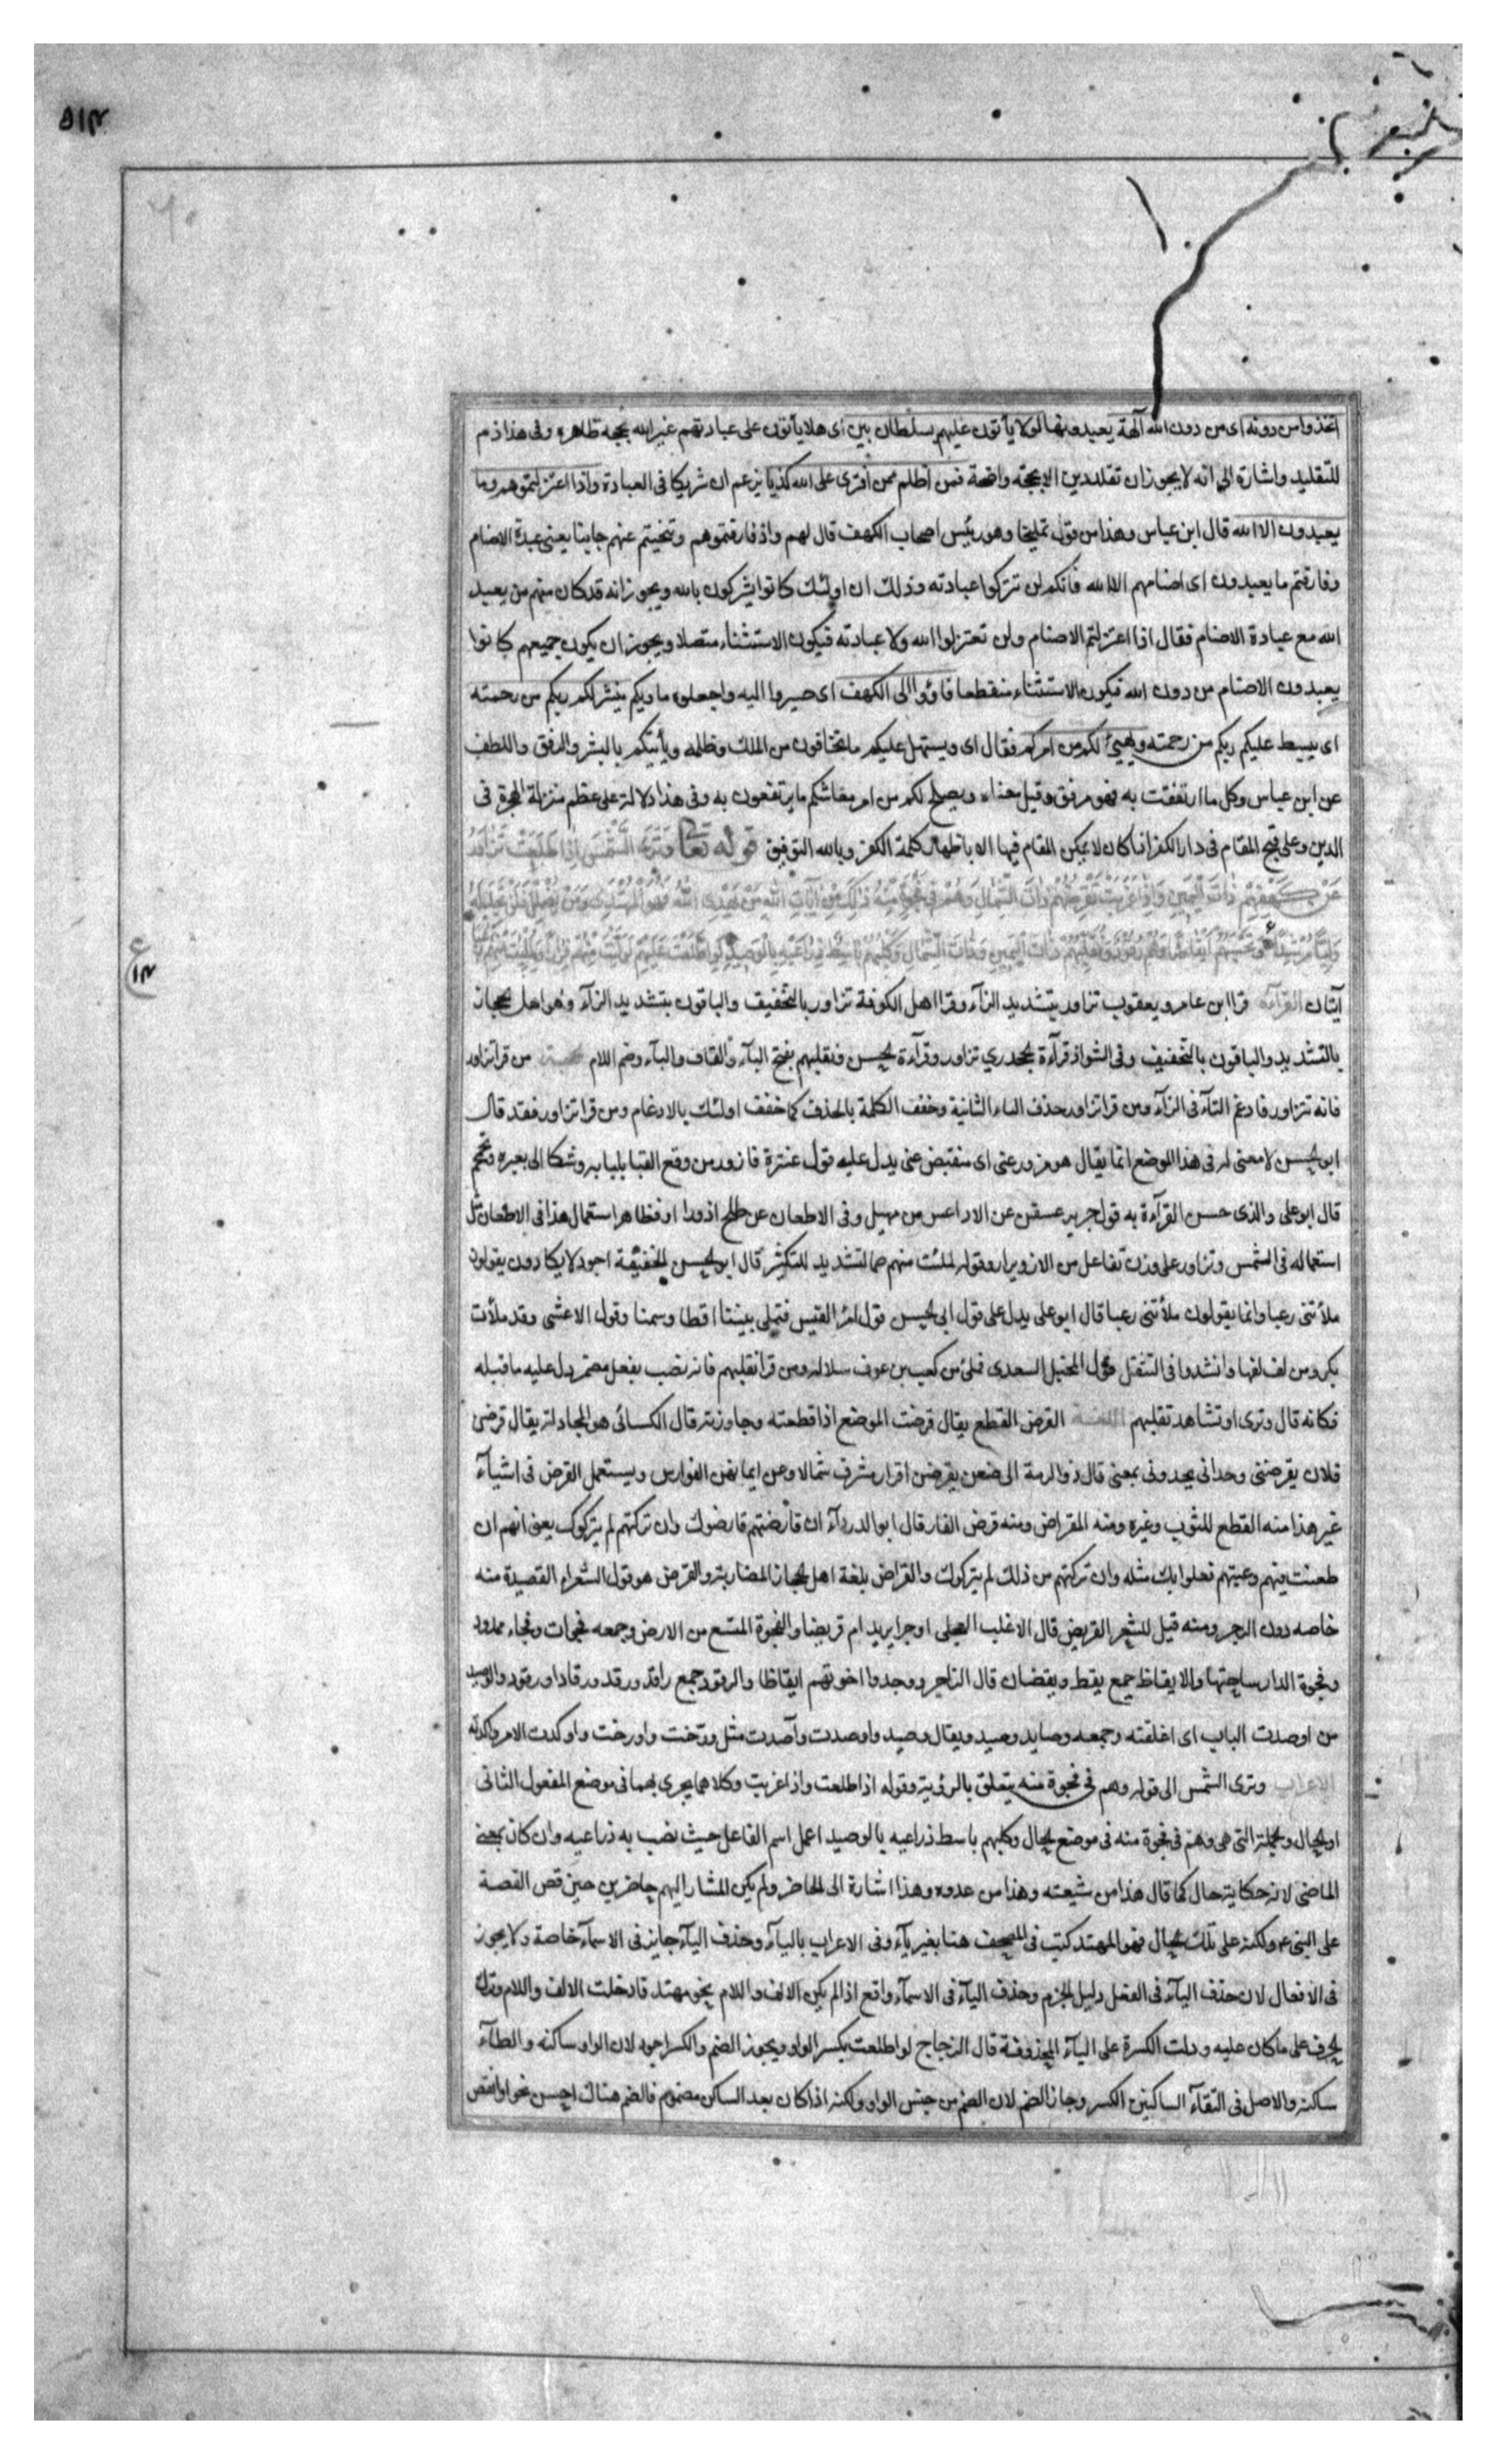 ۵۱۴
اتخذوا من دونه ای من دون الله آلهة یعبدونها لولا یأتون علیهم بسلطان بین ای هلا یأتون علی عبادتهم غیر الله بحجه ظاهره وفی هذا ذم
للتقلید واشارة الی انه لا یجوز ان تقلد دین الا بحجة واضحة فمن اظلم ممن افتری علی الله کذبا یزعم ان شریکا فی العبادة واذا اعتزلتموهم وما
یعبدون الا الله قال ابن عباس وهذا من قول تملیخا وهو رئیس اصحاب الکهف قال لهم واذ فارقتموهم وتنحیتم عنهم جانبا یعنی عبدة الاصنام
وفارقتم ما یعبدون ای اصنامهم الا الله فانکم لن تترکوا عبادته وذلک ان اولئک کانوا یشرکون بالله ویجوز انه قد کان منهم من یعبد
الله مع عبادة الاصنام فقال اذا اعتزلتم الاصنام ولن تعتزلوا الله ولا عبادته فیکون الاستثناء متصلا ویجوز ان یکون جمیعهم کانوا
یعبدون الاصنام من دون الله فیکون الاستثناء منقطعا فاؤوا الی الکهف ای صیروا الیه واجعلوه ماویکم ینشر لکم ربکم من رحمته
ای یبسط علیکم ربکم من رحمته ویهیئ لکم من امرکم فقال ای ویسهل علیکم ما تخافون من الملک وظلمه ویأتیکم بالیسر والرفق واللطف
عن ابن عباس وکل ما ارتفقت به فهو مرفق وقیل معناه ویصلح لکم من امر معاشکم ما یرتفعون به وفی هذا دلالة علی عظم منزلة الهجرة فی
الدین وعلی قبح المقام فی دار الکفر اذا کان لا یمکن المقام فیها الا باظهار کلمة الکفر وبالله التوفیق قوله تعا وتری الشمس اذا طلعت تزاور
عن کهفهم ذات الیمین واذا غربت تقرضهم ذات الشمال وهم فی فجوة منه ذلک من آیات الله من یهدی الله فهو المهتدی ومن یضلل فلن تجد له
ولیا مرشدا وتحسبهم ایقاظا وهم رقود ونقلبهم ذات الیمین وذات الشمال وکلبهم باسط ذراعیه بالوصید لو اطلعت علیهم لولیت منهم فرارا ولملئت منهم رعبا
آیتان القرآءة قرا ابن عامر ویعقوب تزاور بتشدید الزآء وقرا اهل الکوفة تزاور بالتخفیف والباقون بتشدید الزآء وهو اهل الحجاز
بالتشدید والباقون بالتخفیف وفی الشواذ قرآءة الجحدری تزاور وقرآءة الحسن وتقلبهم بفتح التآء والقاف والبآء وضم اللام من قرا تزاور
فانه تتزاور فادغم التآء فی الزآء ومن قرا تزاور حذف التاء الثانیة وخفف الکلمة بالحذف کما خفف اولئک بالادغام ومن قرا تزاور فقد قال
ابو الحسن لا معنی له فی هذا الموضع انما یقال هو مزور عنی ای منقبض عنی یدل علیه قول عنترة فازور من وقع القنا بلبانه وشکا الی بعبره وتحمحم
قال ابو علی والذی حسن القرآءة به قول جریر عسفن عن الاداعس من مهیل وفی الاظعان عن طلح ازورا فظاهر استعمال هذا فی الاظعان مثل
استعماله فی الشمس وتزاور علی وزن تفاعل من الازویرار وقوله لملئت منهم فالتشدید للتکثیر قال ابو الحسن الخفیفة اجود لا یکادون یقولون
ملأتنی رعبا وانما یقولون ملأتنی رعبا قال ابو علی یدل علی قول ابی الحسن قول امرؤ القیس فتملی بیتنا اقطا وسمنا وقول الاعشی وقد ملأت
بکر ومن لف لفها وانشدوا فی التثقیل قول المخبل السعدی فملئ من کعب بن عوف سلاله ومن قرا تقلبهم فانه نصب بفعل مضمر دل علیه ما قبله
فکانه قال وتری او تشاهد تقلبهم اللغة القرض القطع یقال قرضت الموضع اذا قطعته وجاوزته قال الکسائی هو المجاداة یقال قرضنی
فلان یقرضنی وحدانی یحدونی بمعنی قال ذو الرمة الی ظعن یقرضن اقواز مشرف شمالا وعن ایمانهن الفوارس ویستعمل القرض فی اشیآء
غیر هذا منه القطع للثوب وغیره ومنه المقراض ومنه قرض الفار قال ابو الدردآء ان قارضتهم قارضوک وان ترکتهم لم یترکوک یعنی انهم ان
طعنت فیهم وعبتهم فعلوا بک مثله وان ترکتهم من ذلک لم یترکوک والقراض بلغة اهل الحجاز المضاربة والقرض هو قول الشعراء القصیدة منه
خاصه دون الرجز ومنه قیل للشعر القریض قال الاغلب العجلی ارجزا یرید ام قریضا والفجوة المتسع من الارض وجمعه فجوات وفجاء ممدود
وفجوة الدار ساحتها والایقاظ جمع یقظ ویقضان قال الراجز ووجدوا اخوتهم ایقاظا والرقود جمع راقد ورقد ورقادا ورقود والوصید
من اوصدت الباب ای اغلقته وجمعه وصاید وصید ویقال وصید واوصدت وآصدت مثل ورخت واورخت واوکدت الامر واکدته
الاعراب وتری الشمس الی قوله وهم فی فجوة منه یتعلق بالرؤیة وقوله اذا طلعت واذا غربت وکلاهما یجری بهما فی موضع المفعول الثانی
او الحال والجملة التی هی وهم فی فجوة منه فی موضع الحال وکلبهم باسط ذراعیه بالوصید اعمل اسم الفاعل حیث نصب به ذراعیه وان کان بمعنی
الماضی لانه حکایة حال کما قال هذا من شیعته وهذا من عدوه وهذا اشارة الی الحاضر ولم یکن المشار الیهم حاضرین حین قص القصة
علی النبی ع ولکنه علی تلک الحال فهو المهتد کتب فی المصحف هنا بغیر یآء وفی الاعراب بالیآء وحذف الیآء جایز فی الاسمآء خاصة ولا یجوز
فی الافعال لان حذف الیآء فی الفعل دلیل الجزم وحذف الیآء فی الاسمآء واقع اذا لم یکن الالف واللام نحو مهتد فادخلت الالف واللام وترک
الحرف علی ما کان علیه ودلت الکسرة علی الیآء المحذوفة قال الزجاج لو اطلعت بکسر الواو ویجوز الضم والکسر اجود لان الواو ساکنه والطآء
ساکنه والاصل فی التقآء الساکنین الکسر وجاز الضم لان الضم من جنس الواو ولکنه اذا کان بعد الساکن مضموم فالضم هناک احسن نحو او انقص
ع
۱۴